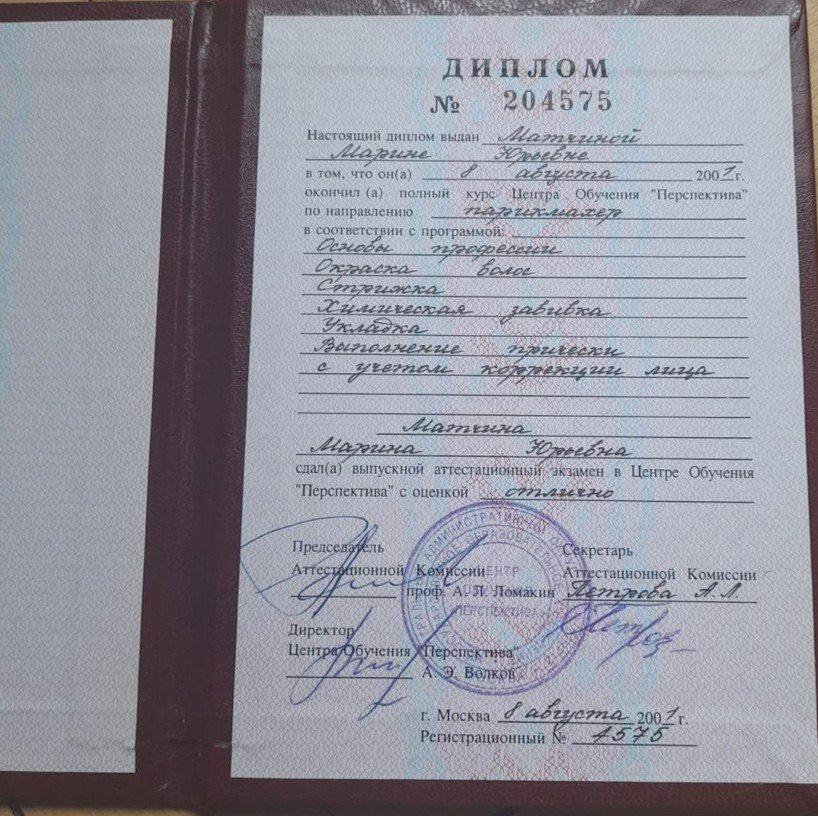 ДИПЛОМ
№ 204575
Настоящий диплом выдан Матчиной
Марине Юрьевне
в том, что он(а) 8 августа 2001г.
окончил (а) полный курс Центра Обучения "Перспектива"
по направлению парикмахер
в соответствии с программой:
Основы профессии
Окраска волос
Стрижка
Химическая завивка
Укладка
Выполнение прически
с учетом коррекции лица
Матчина
Марина Юрьевна
сдал(а) выпускной аттестационный экзамен в Центре Обучения
"Перспектива" с оценкой отлично
Председатель
Аттестационной Комиссии
проф. А. Л. Ломакин
Секретарь
Аттестационной Комиссии
Петрова А. Л.
Директор
Центра Обучения "Перспектива"
А. Э. Волков
г. Москва 8 августа 2001г.
Регистрационный № 4575
ЦЕНТР
ПЕРСПЕКТИВА